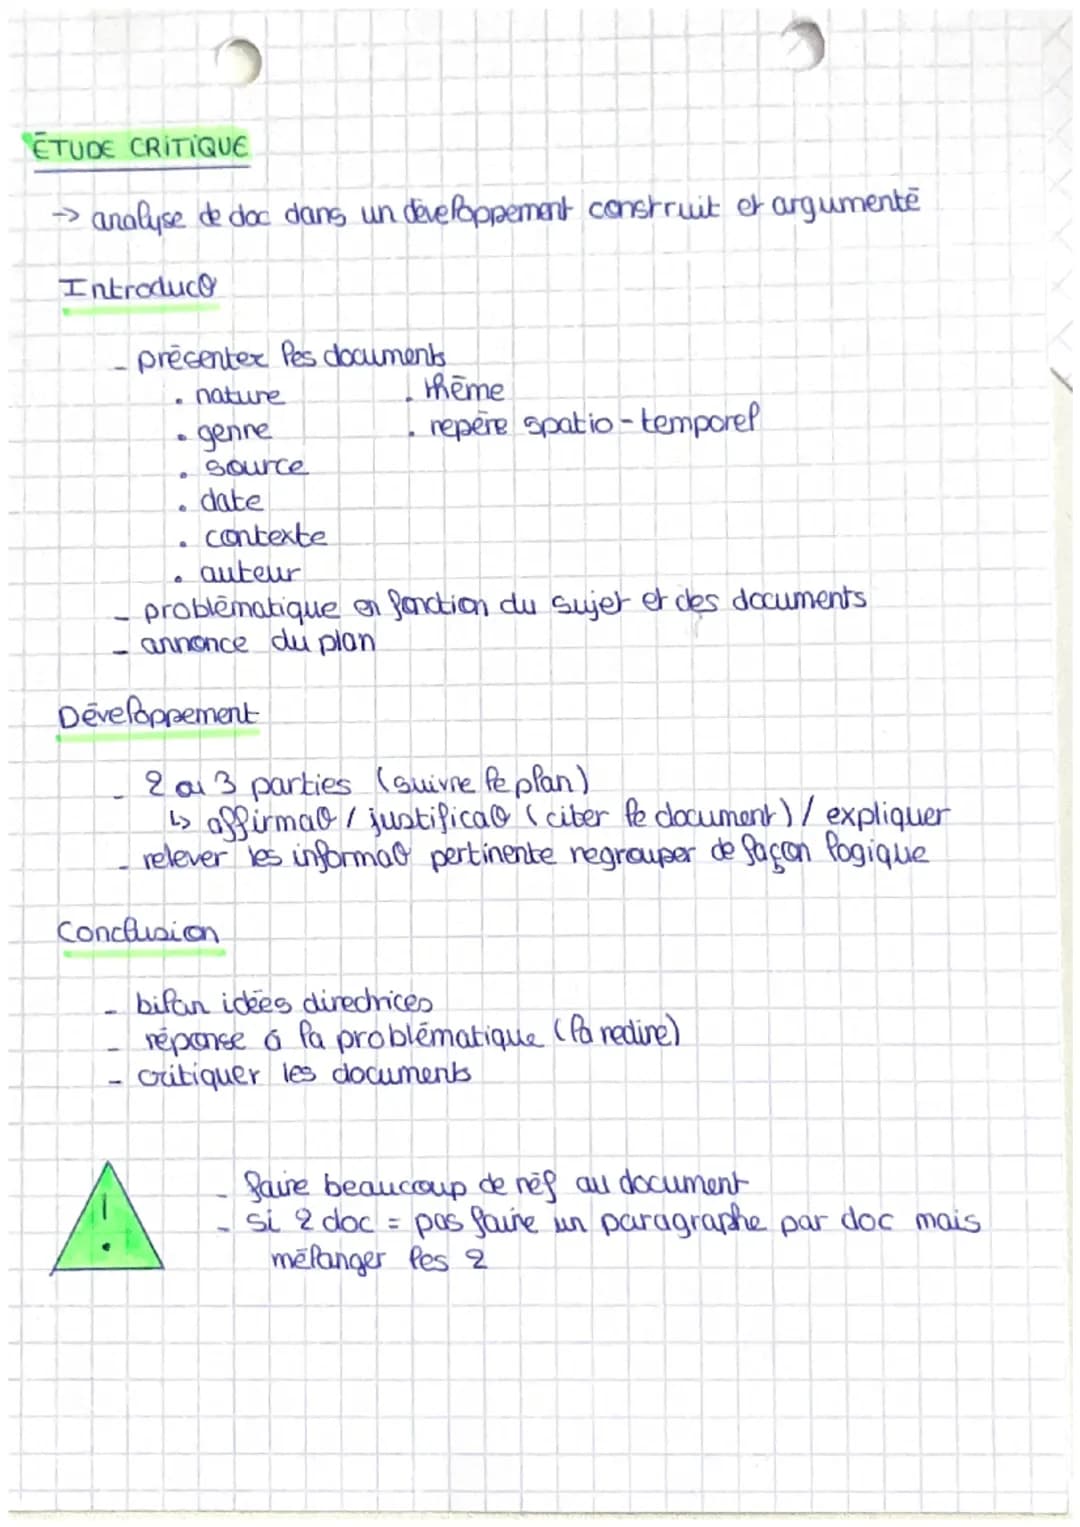 ÉTUDE CRITIQUE
→ analyse de doc dans un développement construit et argumenté
Introducø
- présenter les documents
. nature . thème
. genre . repère spatio-temporel
. source
. date
. contexte
. auteur
- problématique en fonction du sujet et des documents
- annonce du plan
Développement
- 2 ou 3 parties (suivre le plan)
↳ affirmaø / justificaø (citer le document) / expliquer
- relever les informaø pertinente regrouper de façon logique
Conclusion
- bilan idées directrices
- réponse à la problématique (la redire)
- critiquer les documents
!
- faire beaucoup de réf au document
- si 2 doc = pas faire un paragraphe par doc mais
mélanger les 2